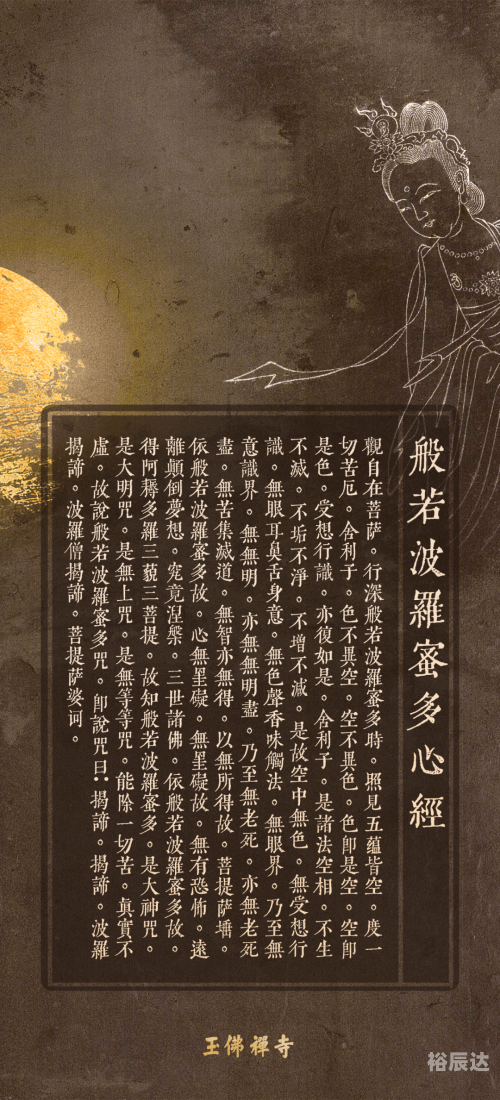 般若波羅蜜多心經
觀自在菩薩。行深般若波羅蜜多時。照見五蘊皆空。度一
切苦厄。舍利子。色不異空。空不異色。色卽是空。空卽
是色。受想行識。亦復如是。舍利子。是諸法空相。不生
不滅。不垢不淨。不增不減。是故空中無色。無受想行
識。無眼耳鼻舌身意。無色聲香味觸法。無眼界。乃至無
意識界。無無明。亦無無明盡。乃至無老死。亦無老死
盡。無苦集滅道。無智亦無得。以無所得故。菩提薩埵。
依般若波羅蜜多故。心無罣礙。無罣礙故。無有恐怖。遠
離顛倒夢想。究竟涅槃。三世諸佛。依般若波羅蜜多故。
得阿耨多羅三藐三菩提。故知般若波羅蜜多。是大神咒。
是大明咒。是無上咒。是無等等咒。能除一切苦。眞實不
虛。故說般若波羅蜜多咒。卽說咒曰：揭諦。揭諦。波羅
揭諦。波羅僧揭諦。菩提薩婆訶。
玉佛禪寺
裕辰达